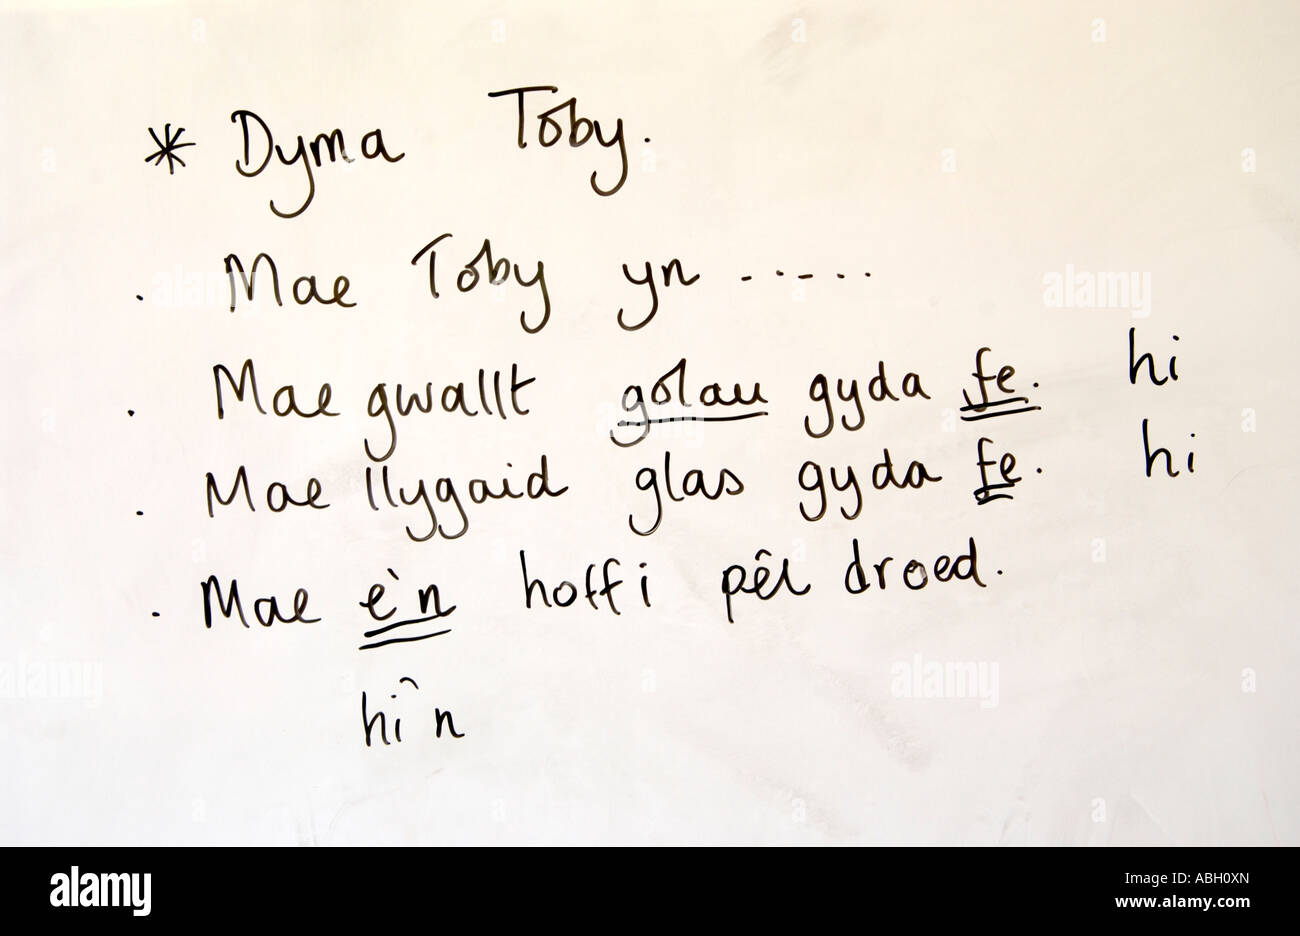 * Dyma Toby.
. Mae Toby yn .....
. Mae gwallt golau gyda fe. hi
. Mae llygaid glas gyda fe. hi
. Mae e'n hoffi pêl droed.
hi'n
a alamy
alamy
Image ID: ABH0XN
www.alamy.com